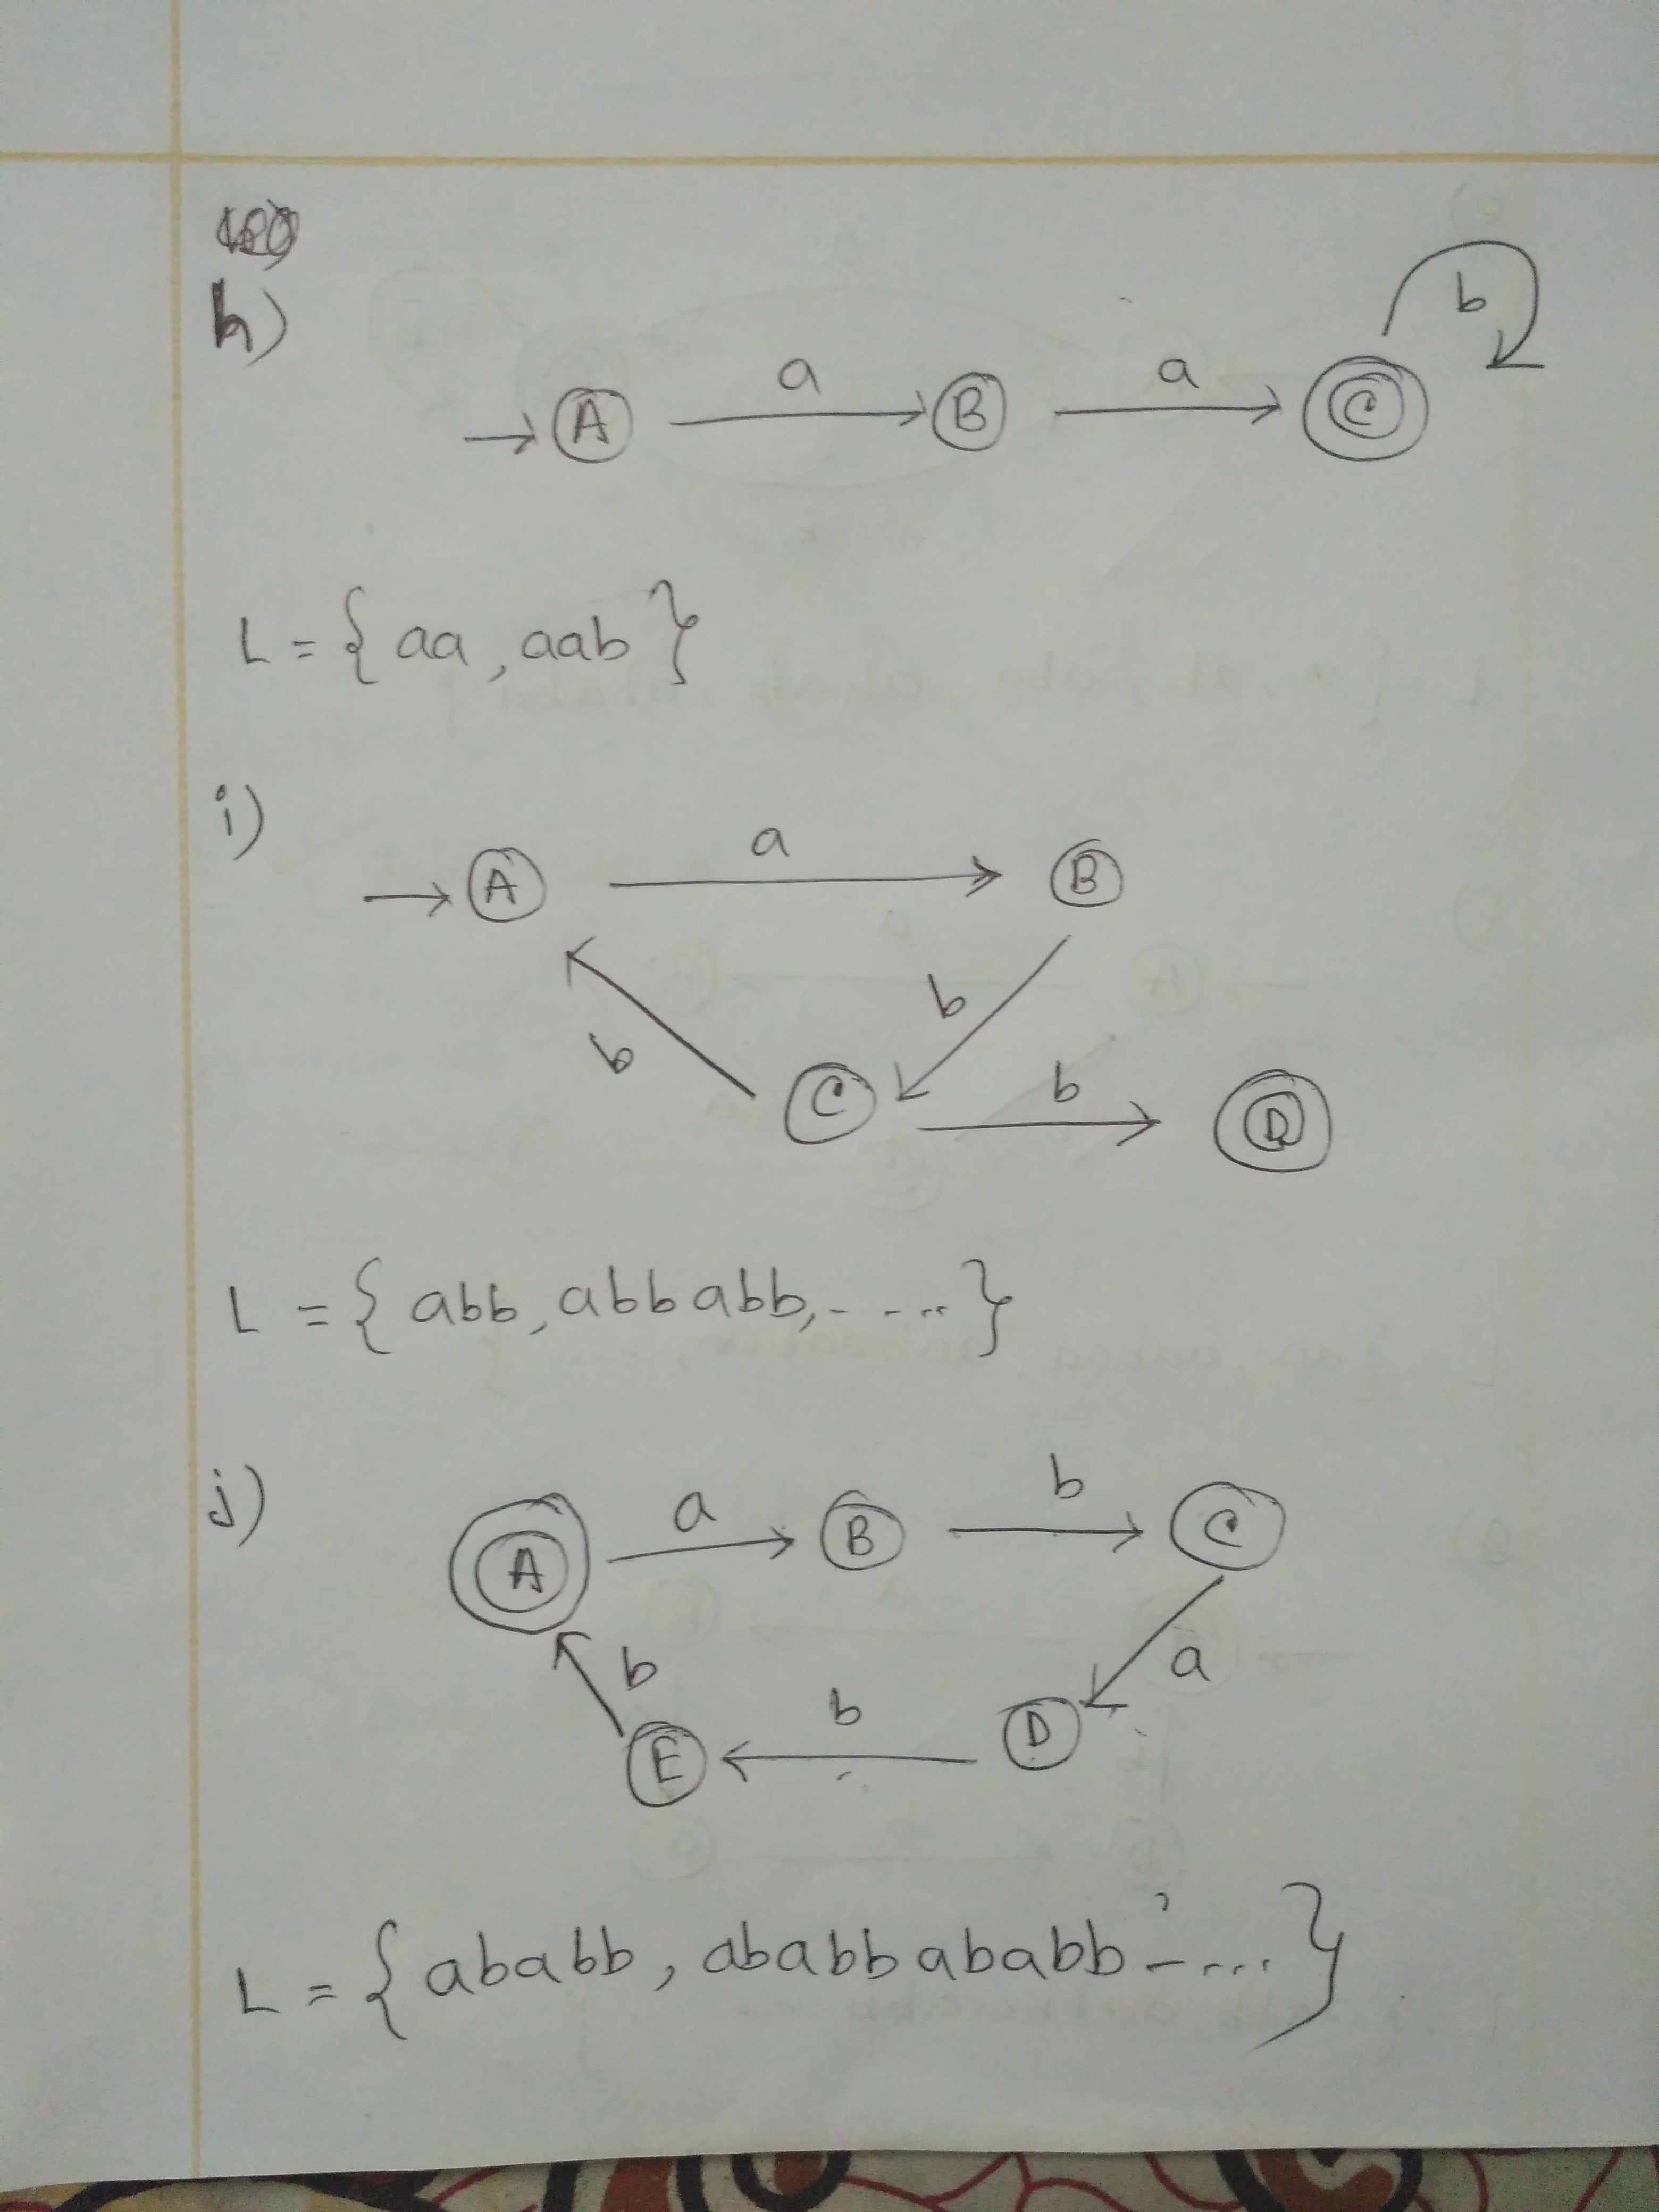 h)
b
→ A a → B a → C
L = { aa, aab }
i)
→ A a → B
b b
C b → D
L = { abb, abbabb, - - ... }
j)
A a → B b → C
b b a
E ← D
L = { ababb, ababbababb, - ... }